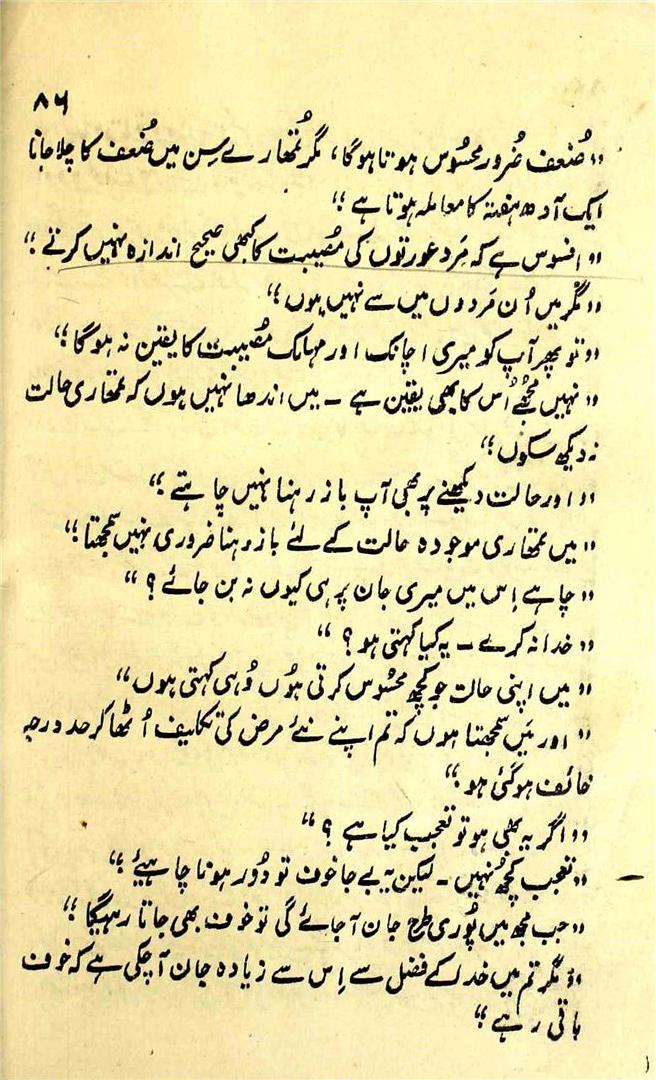 ۸۶
"ضُعف ضُرور محسُوس ہوتا ہوگا، مگر تُمھارے سِن میں ضُعف کا چلا جانا
ایک آدھ ہفتہ کا معاملہ ہوتا ہے"
"افسوس ہے کہ مَرد عورتوں کی مُصیبت کا کبھی صحیح اندازہ نہیں کرتے"
"مگر میں اُن مَردوں میں سے نہیں ہوں"
"تو پھر آپ کو میری اچانک اور مہلک مُصیبت کا یقین نہ ہوگا"
"نہیں مجھے اُس کا بھی یقین ہے۔ میں اندھا نہیں ہوں کہ تمھاری حالت
نہ دیکھ سکوں"
"اور حالت دیکھنے پر بھی آپ باز رہنا نہیں چاہتے"
"میں تمھاری موجودہ حالت کے لئے باز رہنا ضروری نہیں سمجھتا"
"چاہے اِس میں میری جان پر ہی کیوں نہ بن جائے؟"
"خدا نہ کرے۔ یہ کیا کہتی ہو؟"
"میں اپنی حالت جو کچھ محسُوس کرتی ہُوں وُہی کہتی ہوں"
"اور مَیں سمجھتا ہوں کہ تم اپنے نئے مرض کی تکلیف اُٹھا کر حد درجہ
خائف ہوگئی ہو"
"اگر یہ بھی ہو تو تعجب کیا ہے؟"
"تعجب کچھ نہیں۔ لیکن یہ بے جا خوف تو دُور ہونا چاہیئے"
"جب مجھ میں پُوری طرح جان آجائے گی تو خوف بھی جاتا رہیگا"
"مگر تم میں خدا کے فضل سے اِس سے زیادہ جان آچکی ہے کہ خوف
باقی رہے"